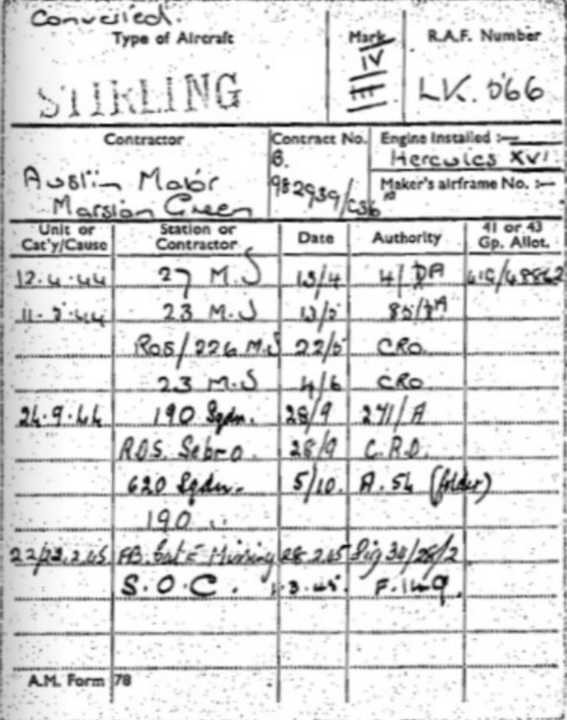 Converted.
Type of Aircraft
Mark
R.A.F. Number
STIRLING
IV
III
LK.066
Contractor
Contract No.
Engine Installed :—
Austin Motor
Marston Green
6.
982939/C36
Hercules XVI
Maker's airframe No. :—
Unit or Cat'y/Cause
Station or Contractor
Date
Authority
41 or 43 Gp. Allot.
12.4.44 27 M.U 13/4 41/DA
23 M.U
ROS/226 M.U 22/5 CRO.
23 M.U 4/6 CRO
24.9.44 190 Sqdn. 28/9 271/A
R.O.S. Sebro. 28/9 C.R.D.
620 Sqdn. 5/10. A.54 (folder)
190 "
FB. Cat E Missing 28.2.45 Sig 34/28/2
S.O.C. 1.3.45. F.149.
A.M. Form 78